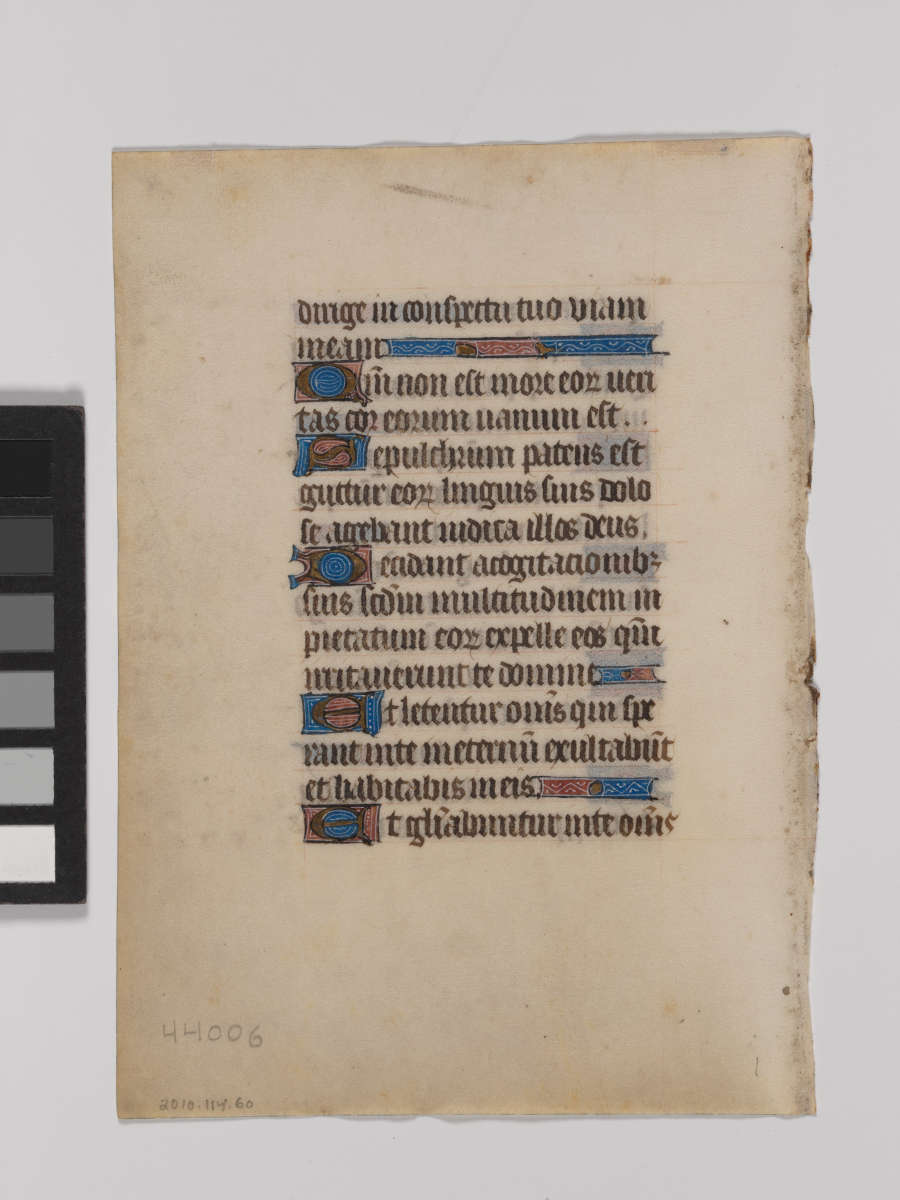 dirige in conspectu tuo viam
meam
Qm̄ non est in ore eoꝝ veri
tas cor eorum vanum est.
Sepulchrum patens est
guttur eoꝝ linguis suis dolo
se agebant iudica illos deus.
Decidant a cogitacionibꝫ
suis scd̄m multitudinem in
pietatum eoꝝ expelle eos qm̄
irritaverunt te domine
Et letentur om̄s qui spe
rant in te in eternū exultabūt
et habitabis in eis.
Et glīabuntur in te om̄s
44006
2010.114.60